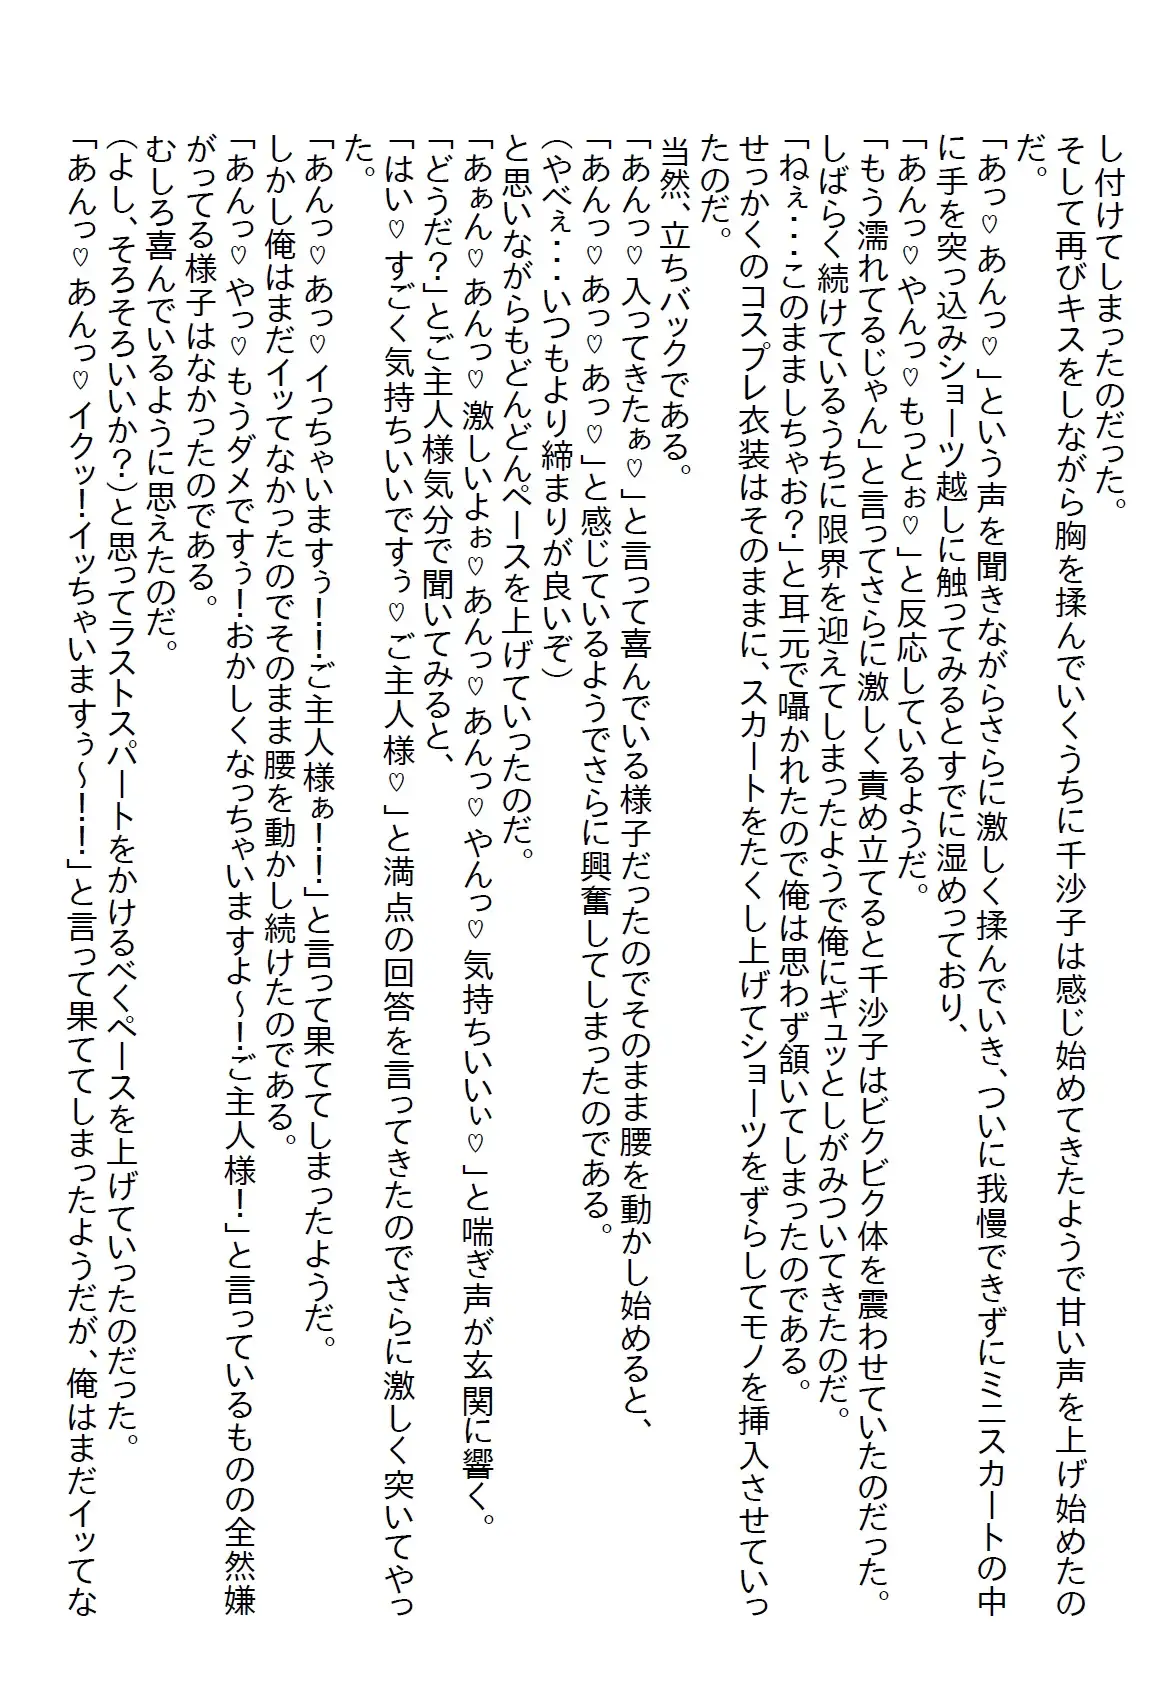 し付けてしまったのだった。
そして再びキスをしながら胸を揉んでいくうちに千沙子は感じ始めてきたようで甘い声を上げ始めたの
だ。
「あっ♡あんっ♡」という声を聞きながらさらに激しく揉んでいき、ついに我慢できずにミニスカートの中
に手を突っ込みショーツ越しに触ってみるとすでに湿めっており、
「あんっ♡やんっ♡もっとぉ♡」と反応しているようだ。
「もう濡れてるじゃん」と言ってさらに激しく責め立てると千沙子はビクビク体を震わせていたのだった。
しばらく続けているうちに限界を迎えてしまったようで俺にギュッとしがみついてきたのだ。
「ねぇ・・・このまましちゃお？」と耳元で囁かれたので俺は思わず頷いてしまったのである。
せっかくのコスプレ衣装はそのままに、スカートをたくし上げてショーツをずらしてモノを挿入させていっ
たのだ。
当然、立ちバックである。
「あんっ♡入ってきたぁ♡」と言って喜んでいる様子だったのでそのまま腰を動かし始めると、
「あんっ♡あっ♡あっ♡」と感じているようでさらに興奮してしまったのである。
（やべぇ・・・いつもより締まりが良いぞ）
と思いながらもどんどんペースを上げていったのだ。
「あぁん♡あんっ♡激しいよぉ♡あんっ♡あんっ♡やんっ♡気持ちいいぃ♡」と喘ぎ声が玄関に響く。
「どうだ？」とご主人様気分で聞いてみると、
「はい♡すごく気持ちいいですぅ♡ご主人様♡」と満点の回答を言ってきたのでさらに激しく突いてやっ
た。
「あんっ♡あっ♡イっちゃいますぅ！！ご主人様ぁ！！」と言って果ててしまったようだ。
しかし俺はまだイッてなかったのでそのまま腰を動かし続けたのである。
「あんっ♡やっ♡もうダメですぅ！おかしくなっちゃいますよ～！ご主人様！」と言っているものの全然嫌
がってる様子はなかったのである。
むしろ喜んでいるように思えたのだ。
（よし、そろそろいいか？）と思ってラストスパートをかけるべくペースを上げていったのだった。
「あんっ♡あんっ♡イクッ！イッちゃいますぅ～！！」と言って果ててしまったようだが、俺はまだイッてな